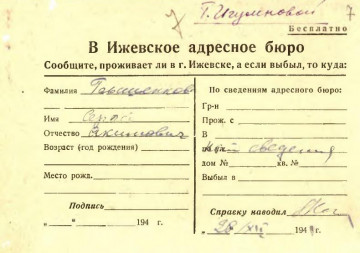 Т. Игумновой 7
Бесплатно
В Ижевское адресное бюро
Сообщите, проживает ли в г. Ижевске, а если выбыл, то куда:
Фамилия
Имя
Отчество Екимович
Возраст (год рождения)
Место рожд.
Подпись
„ “ 194 г.
По сведениям адресного бюро:
Гр-н
Прож. с
В
сведения
дом № кв. №
Выбыл в
Справку наводил
„ 28 “ XII 194 г.